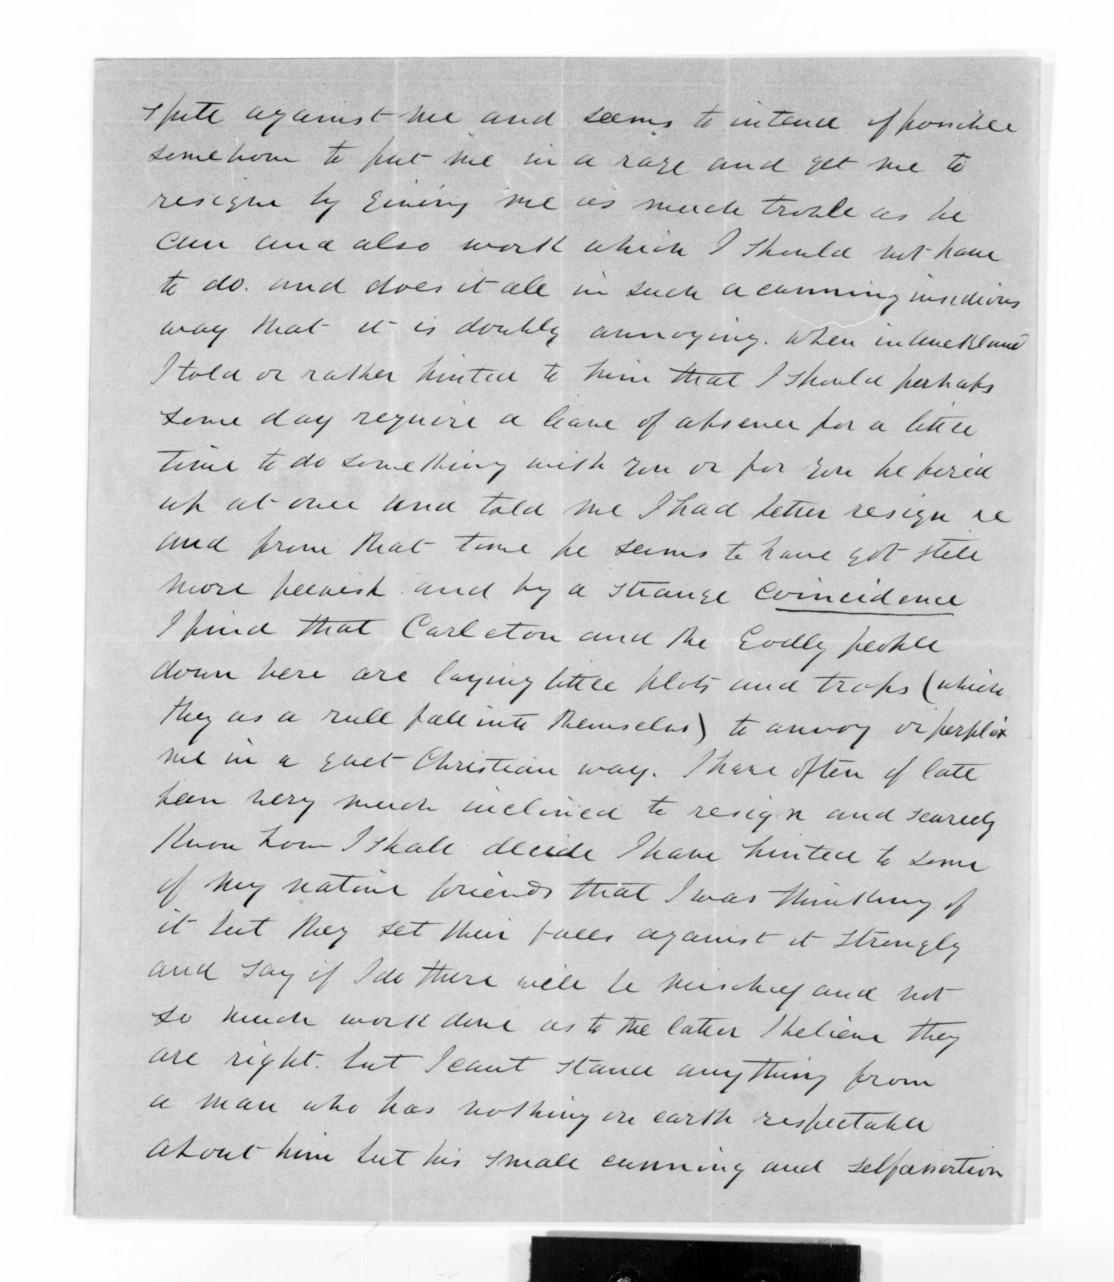 spite against me and seems to intend if possible
somehow to put me in a rage and get me to
resign by giving me as much troble as he
can and also work which I should not have
to do. and does it all in such a cunning insidious
way that it is doubly annoying. when in Auckland
I told or rather hinted to him that I should perhaps
some day require a leave of absence for a little
time to do something with you or for you he fired
up at once and told me I had better resign &c
and from that time he seems to have got still
more peevish. and by a strange coincidence
I find that Carleton and the Godly people
down here are laying little plots and traps (which
they as a rule fall into themselves) to annoy or perplex
me in a quet Christian way. I have often of late
been very much inclined to resign and scarcely
know how I shall decide I have hinted to some
of my native friends that I was thinking of
it but they set their faces against it strongly
and say if I do there will be mischief and not
so much work done as to the latter I believe they
are right. but I cant stand anything from
a man who has nothing on earth respectable
about him but his small cunning and selfassertion